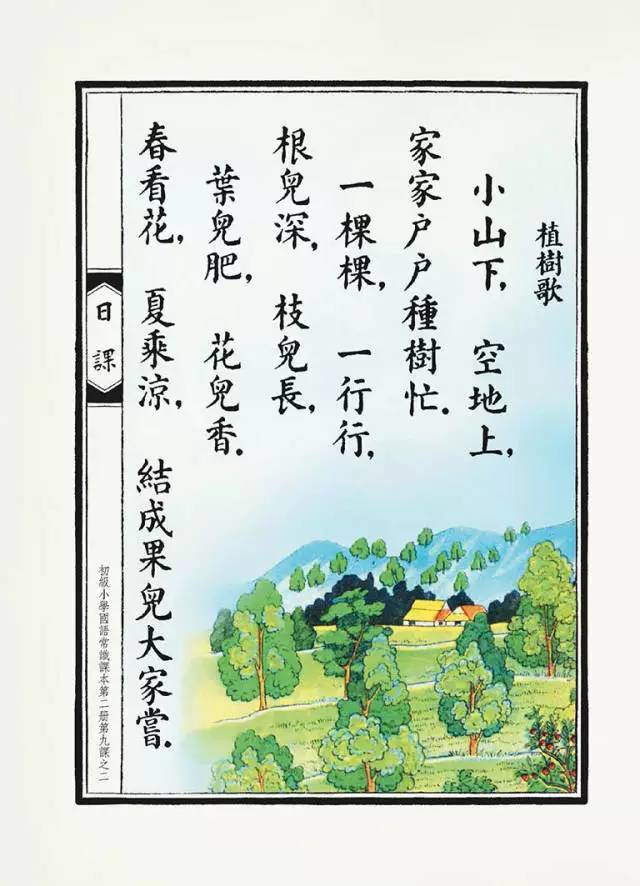 植樹歌
小山下，空地上，
家家戶戶種樹忙．
一棵棵，一行行，
根兒深，枝兒長，
葉兒肥，花兒香．
春看花，夏乘涼，結成果兒大家嘗．
日課
初級小學國語常識課本第二册第九課之二